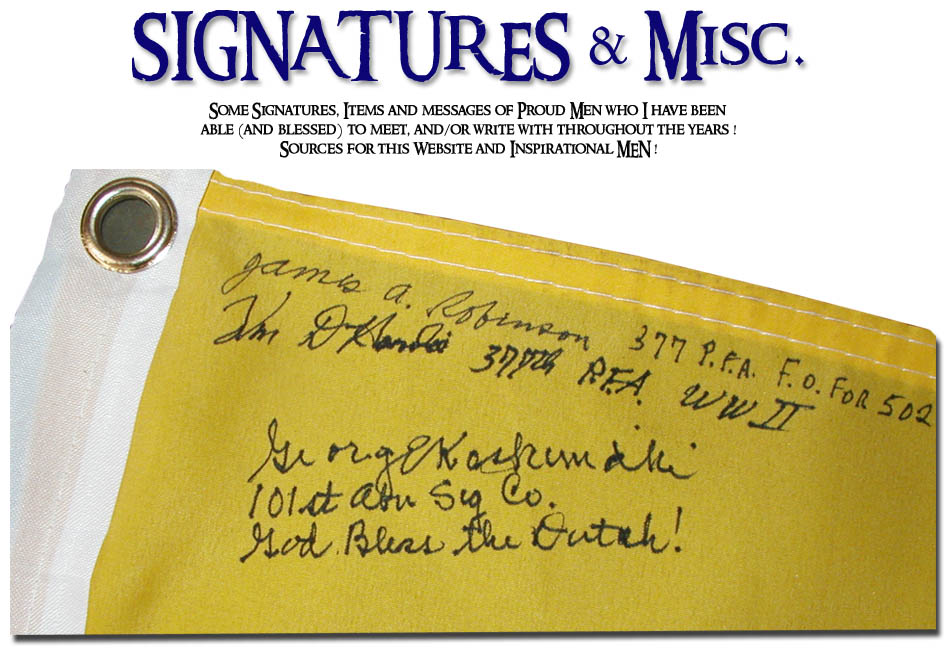 SIGNATURES & MISC.
SOME SIGNATURES, ITEMS AND MESSAGES OF PROUD MEN WHO I HAVE BEEN
ABLE (AND BLESSED) TO MEET, AND/OR WRITE WITH THROUGHOUT THE YEARS !
SOURCES FOR THIS WEBSITE AND INSPIRATIONAL MEN !
James A. Robinson 377 P.F.A. F.O. FOR 502
377th P.F.A. WW II
George Koskimaki
101st Abn Sig Co.
God Bless the Dutch!